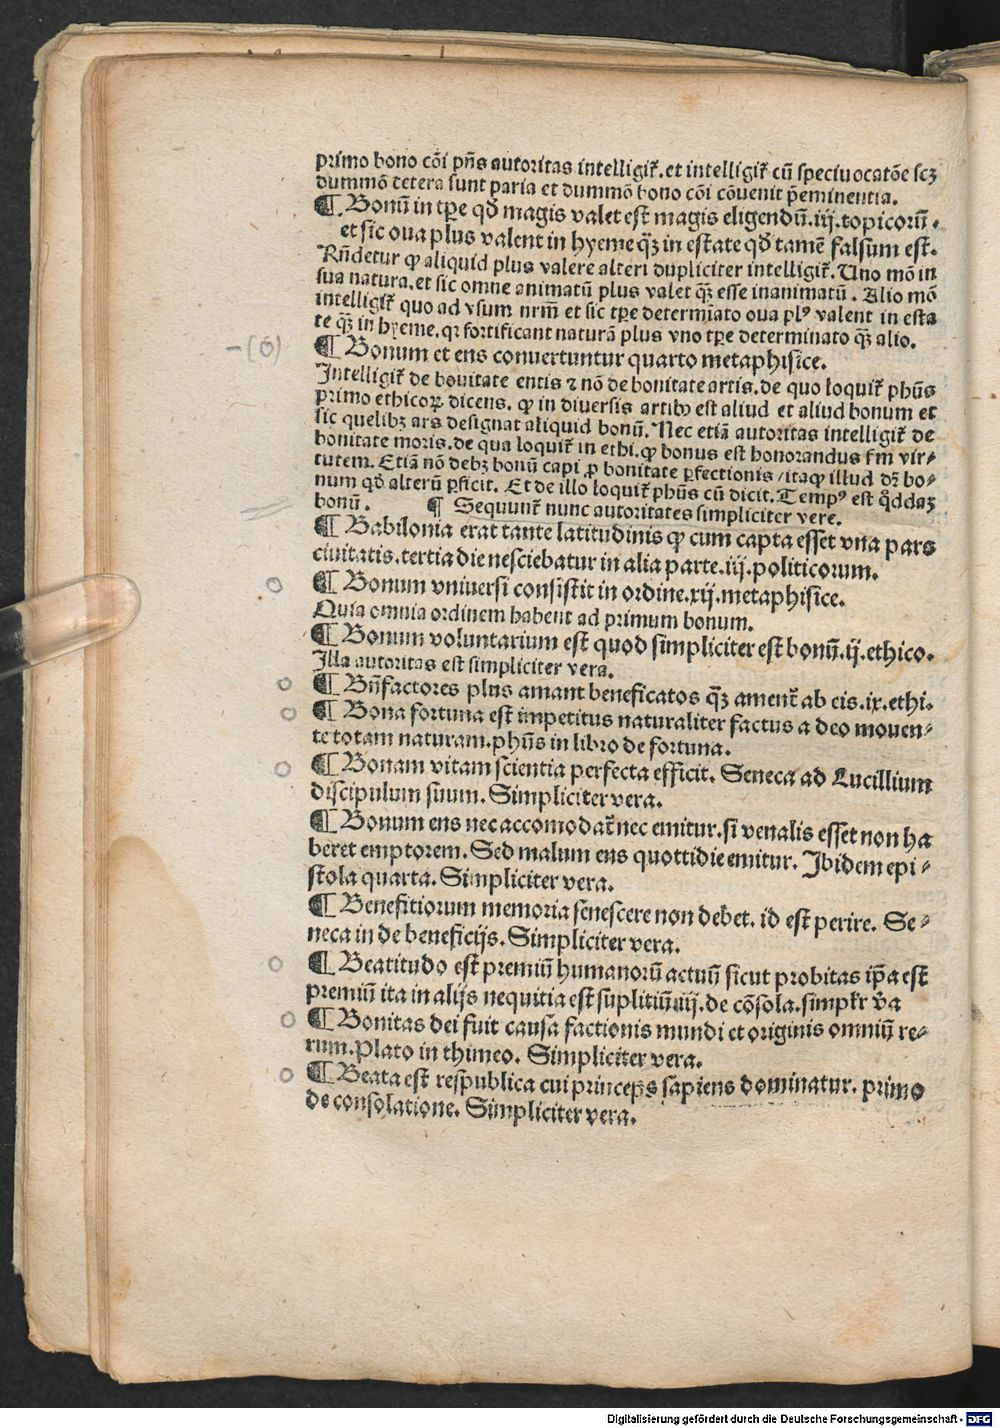 primo bono cōi pn̄s autoritas intelligit᷑. et intelligit᷑ cū speciuocatōe scꝫ
dummō cetera sunt paria et dummō bono cōi cōuenit p̄eminentia.
¶ Bonū in tꝑe qd̛ magis valet est magis eligendū. iij. topicorū.
et sic oua plus valent in hyeme qꝫ in estate qd̛ tamē falsum est.
Rn̄detur ꝙ aliquid plus valere alteri dupliciter intelligit᷑. Uno mō in
sua natura. et sic omne animatū plus valet qꝫ esse inanimatū. Alio mō
intelligit᷑ quo ad vsum nrm̄ et sic tꝑe determiato oua plꝰ valent in esta
te qꝫ in hyeme. qꝛ fortificant naturā plus vno tꝑe determinato qꝫ alio.
-(o)
¶ Bonum et ens conuertuntur quarto metaphisice.
Intelligit᷑ de bouitate entis ⁊ nō de bonitate artis. de quo loquit᷑ phūs
primo ethicoꝝ dicens. ꝙ in diuersis artibꝰ est aliud et aliud bonum et
sic quelibꝫ ars designat aliquid bonū. Nec etiā autoritas intelligit᷑ de
bonitate moris. de qua loquit᷑ in ethi. ꝙ bonus est honorandus fm vir⸗
tutem. Etiā nō debꝫ bonū capi ꝓ bonitate ꝑfectionis / itaꝙ illud dr̄ bo⸗
num qd̛ alterū ꝑficit. Et de illo loquit᷑ phūs cū dicit. Tempꝰ est qd̛daꝫ
bonū. ¶ Sequunt᷑ nunc autoritates simpliciter vere.
¶ Babilonia erat tante latitudinis ꝙ cum capta esset vna pars
ciuitatis. tertia die nesciebatur in alia parte. iij. politicorum.
¶ Bonum vniuersi consistit in ordine. xij. metaphisice.
Quia omnia ordinem habent ad primum bonum.
¶ Bonum voluntarium est quod simpliciter est bonū. ij. ethico.
Illa autoritas est simpliciter vera.
¶ Bn̄factores plus amant beneficatos qꝫ ament᷑ ab eis. ix. ethi.
¶ Bona fortuna est impetitus naturaliter factus a deo mouen⸗
te totam naturam. phūs in libro de fortuna.
¶ Bonam vitam scientia perfecta efficit. Seneca ad Lucillium
discipulum suum. Simpliciter vera.
¶ Bonum ens nec accomodat᷑ nec emitur. si venalis esset non ha
beret emptorem. Sed malum ens quottidie emitur. Ibidem epi⸗
stola quarta. Simpliciter vera.
¶ Benefitiorum memoria senescere non debet. id est perire. Se⸗
neca in de beneficijs. Simpliciter vera.
¶ Beatitudo est premiū humanorū actuū sicut probitas ip̄a est
premiū ita in alijs nequitia est suplitiū. iiij. de cōsola. simplr̄ v̄a
¶ Bonitas dei fuit causa factionis mundi et originis omniū re⸗
rum. Plato in thimeo. Simpliciter vera.
¶ Beata est respublica cui princeps sapiens dominatur. primo
de consolatione. Simpliciter vera.
Digitalisierung gefördert durch die Deutsche Forschungsgemeinschaft - DFG